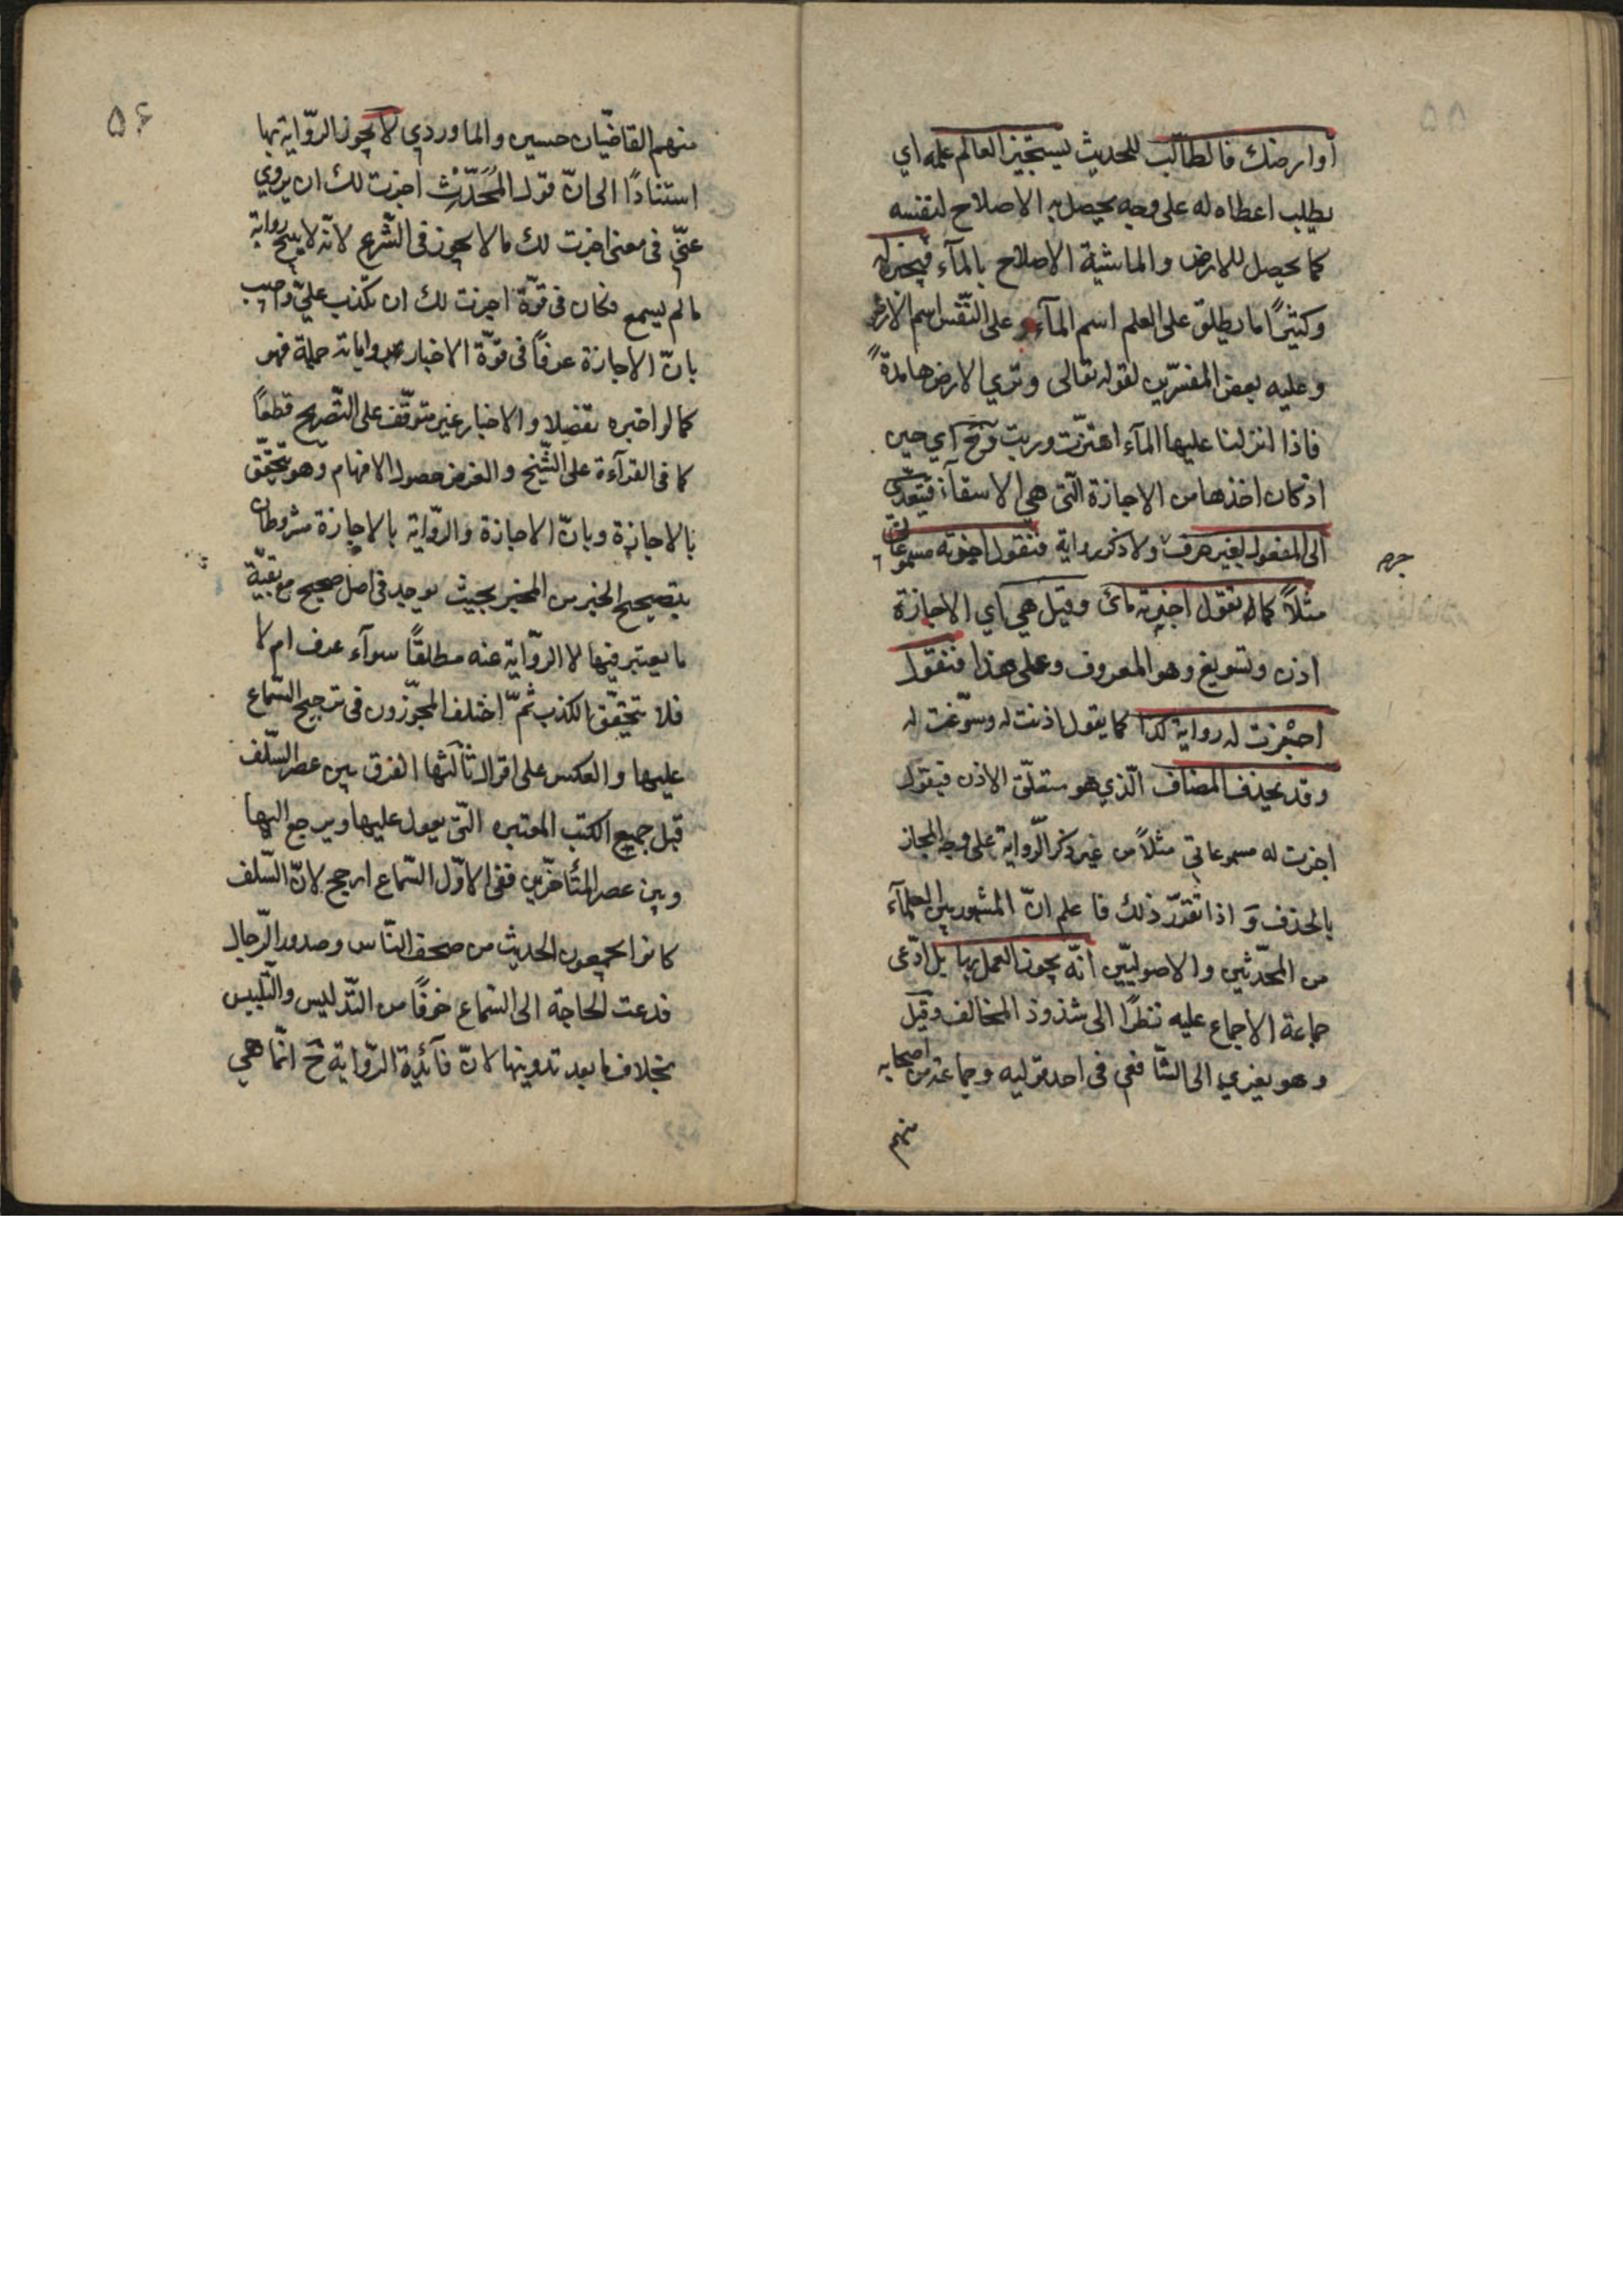 او ارضك فالطالب للحديث يستجيز العالم علمه اي
يطلب اعطاه له على وجه يحصل به الاصلاح لنفسه
كما يحصل للارض والماشية الاصلاح بالمآء فيجيزله
وكثيرًا ما يطلق على العلم اسم المآء وعلى النّفس اسم الارض
وعليه بعض المفسّرين لقوله تعالى وتري الارض هامدةً
فاذا انزلنا عليها المآء اهتزّت وربت وَحَ اي حين
اذ كان اخذها من الاجازة الّتي هي الاسقآء فيتعدّى
الى المفعول بغير حرف ولا ذكر رواية فتقول اجزته مسموعاتي
مثلاً كما تقول اجزته مائى وقيل هي اي الاجازة
اذن وتسويغ وهو المعروف وعلى هذا فتقول
اجزت له رواية كذا كما يقول اذنت له وسوّغت له
وقد يحذف المضاف الّذي هو متعلّق الاذن فيقول
اجزت له مسموعاتي مثلاً من غير ذكر الرّواية على وجه المجاز
بالحذف وَ اذا تقرّر ذلك فاعلم انّ المشهور بين العلمآء
من المحدّثين والاصوليّين انّه يجوز العمل بها بل ادّعى
جماعة الاجماع عليه نظرًا الى شذوذ المخالف وقيل
وهو يعزي الى الشّافعي في احد قوليه وجماعة من اصحابه
منهم
۵۶
منهم القاضيان حسين والماوردي لا يجوز الرّواية بها
استنادًا الى انّ قول المُحَدِّث اجزت لك ان يروي
عنّي في معنى اجزت لك ما لا يجوز فى الشّرع لانّه لا يبيح رواية
ما لم يسمع فكان فى قوّة اجزت لك ان تكذب عليّ واجيب
بانّ الاجازة عرفاً فى قوّة الاخبار بمروياته جملة فهو
كما لو اخبره تفصيلا والاخبار غير متوقّف على التّصريح قطعًا
كما فى القرآءة على الشّيخ والغرض حصول الافهام وهو يتحقّق
بالاجازة وبانّ الاجازة والرّواية بالاجازة مشروطتان
بتصحيح الخبر من المخبر بحيث يوجد فى اصل صحيح مع بقيّة
ما يعتبر فيها لا الرّواية عنه مطلقًا سوآء عرف ام لا
فلا يتحقّق الكذب ثمّ اختلف المجوّزون فى ترجيح السّماع
عليها والعكس على اقوال ثالثها الفرق بين عصر السّلف
قبل جميع الكتب المعتبره الّتي يعول عليها ويرجع اليها
وبين عصر المتأخّرين ففى الاوّل السّماع ارجح لانّ السّلف
كانوا يجمعون الحديث من صحف النّاس وصدور الرّجال
فدعت الحاجة الى السّماع خوفًا من التّدليس والتّلبيس
بخلاف ما بعد تدوينها لانّ فآئدة الرّواية حَ انّما هي